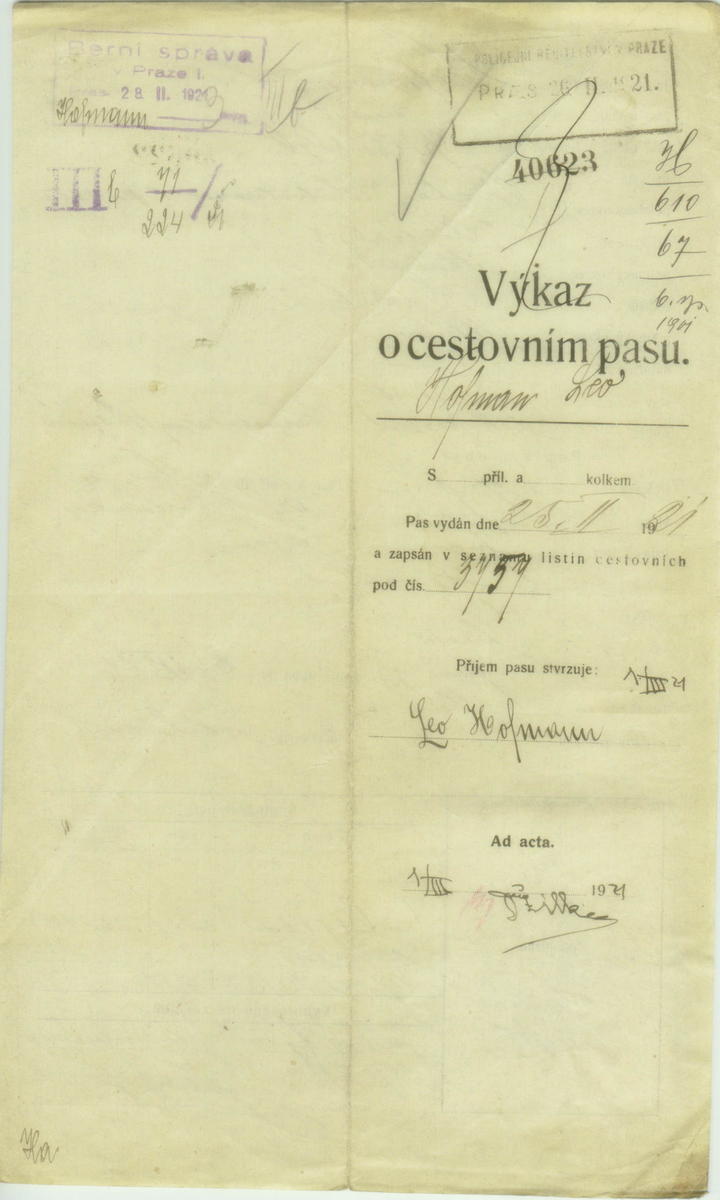 Berní správa
v Praze I.
28 II. 192
Hofmann
III b
III b 71/224
POLICEJNÍ ŘEDITELSTVÍ V PRAZE
PRES 26 II. 1921.
40623
H
610
67
1901
Výkaz
o cestovním pasu.
Hofman Leo
S příl. a kolkem
Pas vydán dne 25. II 1921
a zapsán v seznamu listin cestovních
pod čís. 5757
Příjem pasu stvrzuje: 1/III 21
Leo Hofmann
Ad acta.
1/III 1921
Ha